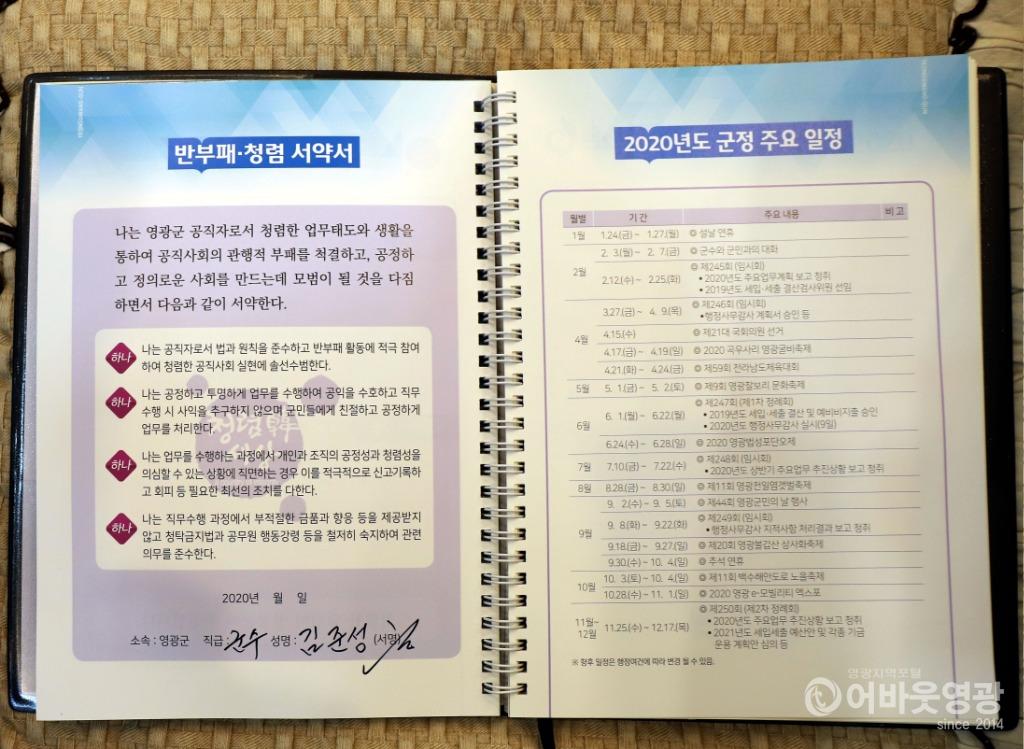 반부패·청렴 서약서
나는 영광군 공직자로서 청렴한 업무태도와 생활을
통하여 공직사회의 관행적 부패를 척결하고, 공정하
고 정의로운 사회를 만드는데 모범이 될 것을 다짐
하면서 다음과 같이 서약한다.
하나 나는 공직자로서 법과 원칙을 준수하고 반부패 활동에 적극 참여
하여 청렴한 공직사회 실현에 솔선수범한다.
하나 나는 공정하고 투명하게 업무를 수행하여 공익을 수호하고 직무
수행 시 사익을 추구하지 않으며 군민들에게 친절하고 공정하게
업무를 처리한다.
하나 나는 업무를 수행하는 과정에서 개인과 조직의 공정성과 청렴성을
의심할 수 있는 상황에 직면하는 경우 이를 적극적으로 신고기록하
고 회피 등 필요한 최선의 조치를 다한다.
하나 나는 직무수행 과정에서 부적절한 금품과 향응 등을 제공받지
않고 청탁금지법과 공무원 행동강령 등을 철저히 숙지하여 관련
의무를 준수한다.
2020년 월 일
소속 : 영광군 직급 : 군수 성명 : 김준성 (서명)
2020년도 군정 주요 일정
월별 기 간 주요 내용 비 고
1월 1.24.(금) ~ 1.27.(월) ◎ 설날 연휴
2월 2. 3.(월) ~ 2. 7.(금) ◎ 군수와 군민과의 대화
2.12.(수) ~ 2.25.(화) ◎ 제245회 (임시회)
• 2020년도 주요업무계획 보고 청취
• 2019년도 세입·세출 결산검사위원 선임
4월 3.27.(금) ~ 4. 9.(목) ◎ 제246회 (임시회)
• 행정사무감사 계획서 승인 등
4.15.(수) ◎ 제21대 국회의원 선거
4.17.(금) ~ 4.19.(일) ◎ 2020 곡우사리 영광굴비축제
4.21.(화) ~ 4.24.(금) ◎ 제59회 전라남도체육대회
5월 5. 1.(금) ~ 5. 2.(토) ◎ 제9회 영광찰보리 문화축제
6월 6. 1.(월) ~ 6.22.(월) ◎ 제247회 (제1차 정례회)
• 2019년도 세입·세출 결산 및 예비비지출 승인
• 2020년도 행정사무감사 실시(9일)
6.24.(수) ~ 6.28.(일) ◎ 2020 영광법성포단오제
7월 7.10.(금) ~ 7.22.(수) ◎ 제248회 (임시회)
• 2020년도 상반기 주요업무 추진상황 보고 청취
8월 8.28.(금) ~ 8.30.(일) ◎ 제11회 영광천일염갯벌축제
9월 9. 2.(수) ~ 9. 5.(토) ◎ 제44회 영광군민의 날 행사
9. 8.(화) ~ 9.22.(화) ◎ 제249회 (임시회)
• 행정사무감사 지적사항 처리결과 보고 청취
9.18.(금) ~ 9.27.(일) ◎ 제20회 영광불갑산 상사화축제
9.30.(수) ~ 10. 4.(일) ◎ 추석 연휴
10월 10. 3.(토) ~ 10. 4.(일) ◎ 제11회 백수해안도로 노을축제
10.28.(수) ~ 11. 1.(일) ◎ 2020 영광 e-모빌리티 엑스포
11월~
12월 11.25.(수) ~ 12.17.(목) ◎ 제250회 (제2차 정례회)
• 2020년도 주요업무 추진상황 보고 청취
• 2021년도 세입세출 예산안 및 각종 기금
운용 계획안 심의 등
※ 향후 일정은 행정여건에 따라 변경 될 수 있음.
영광지역포털
어바웃영광
since 2014